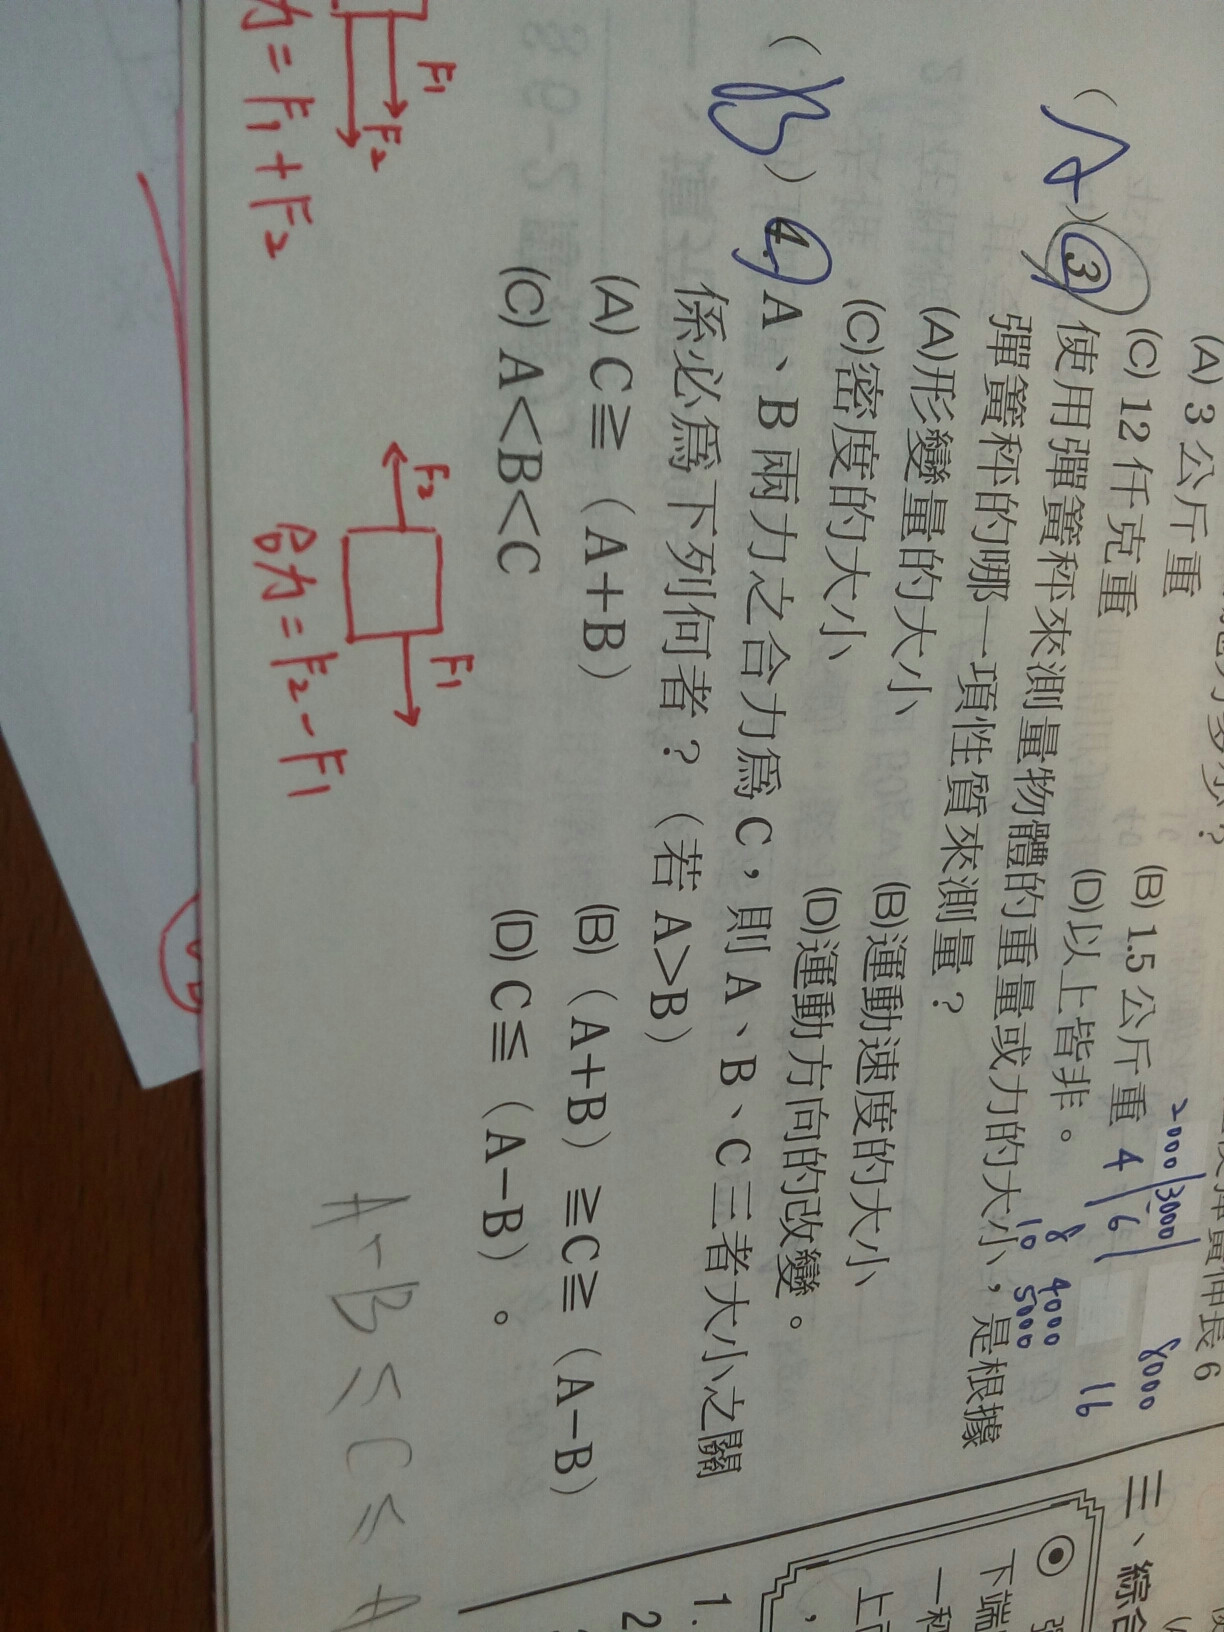 (A) 3公斤重
(B) 1.5公斤重
(C) 12仟克重
(D)以上皆非。
2000 3000 8000
4 6 16
8 4000
10 5000
(A)3 使用彈簧秤來測量物體的重量或力的大小,是根據
彈簧秤的哪一項性質來測量?
(A)形變量的大小 (B)運動速度的大小
(C)密度的大小 (D)運動方向的改變。
(B)4. A、B兩力之合力為C,則A、B、C三者大小之關
係必為下列何者?(若A>B)
(A) C≧(A+B) (B)(A+B)≧C≧(A−B)
(C) A<B<C (D) C≦(A−B)。
F1
F2
力=F1+F2
F2 F1
合力=F2-F1
A-B≤C≤A
三、綜合
下端
一種
1.
2